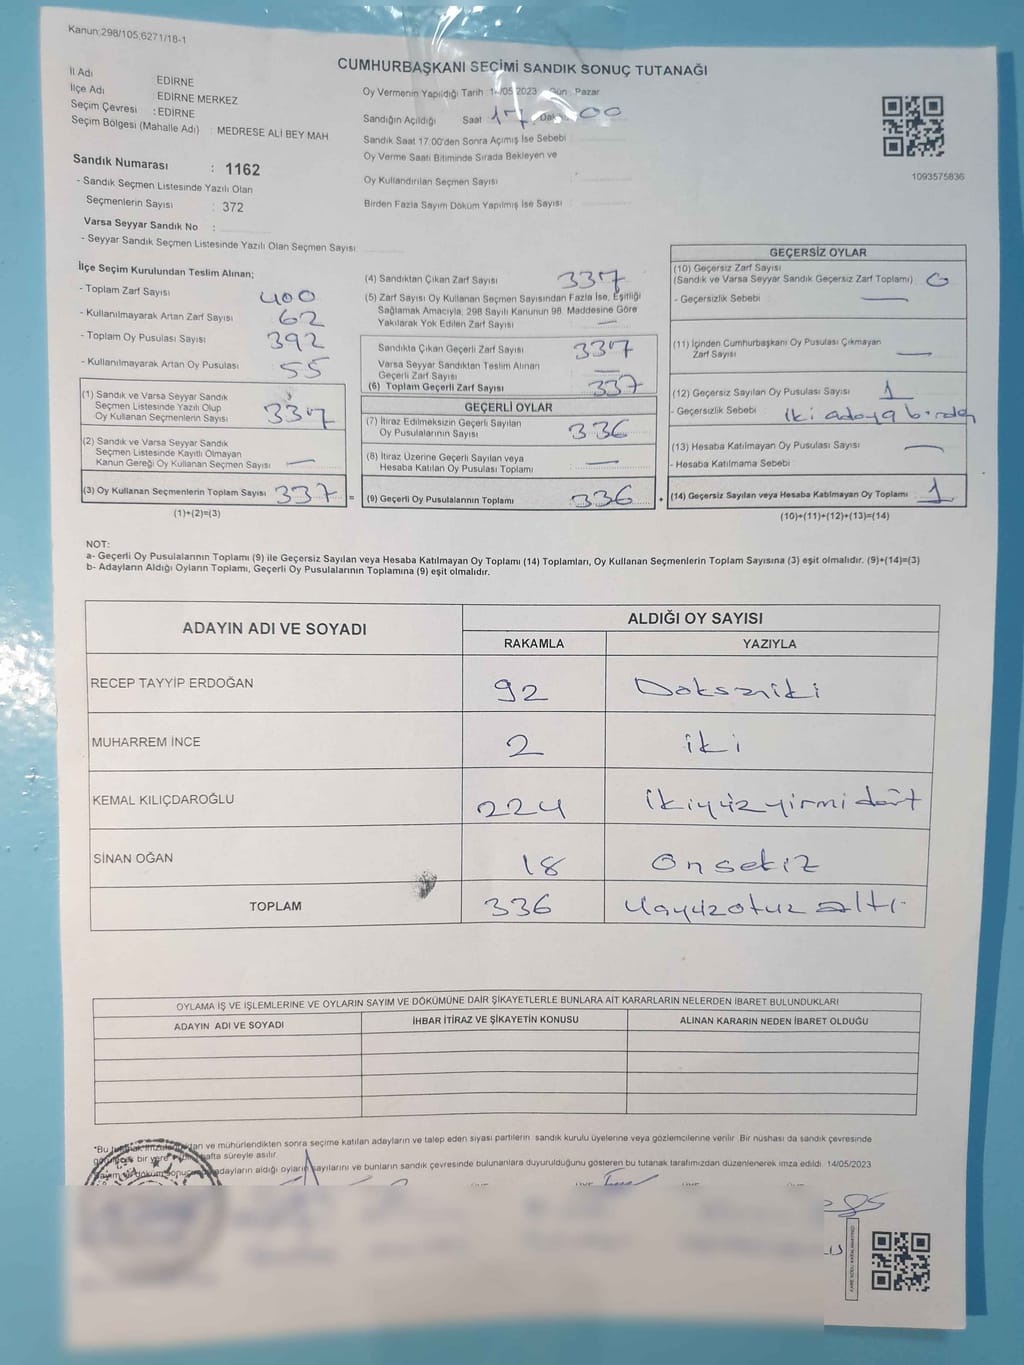 Kanun:298/105;6271/18-1
CUMHURBAŞKANI SEÇİMİ SANDIK SONUÇ TUTANAĞI
İl Adı EDİRNE
İlçe Adı EDİRNE MERKEZ
Seçim Çevresi : EDİRNE
Seçim Bölgesi (Mahalle Adı) : MEDRESE ALİ BEY MAH
Sandık Numarası : 1162
- Sandık Seçmen Listesinde Yazılı Olan
Seçmenlerin Sayısı : 372
Varsa Seyyar Sandık No :
- Seyyar Sandık Seçmen Listesinde Yazılı Olan Seçmen Sayısı
Oy Vermenin Yapıldığı Tarih 14/05/2023 Gün : Pazar
Sandığın Açıldığı Saat 17 Dak 00
Sandık Saat 17:00'den Sonra Açımış İse Sebebi
Oy Verme Saati Bitiminde Sırada Bekleyen ve
Oy Kullandırılan Seçmen Sayısı
Birden Fazla Sayım Döküm Yapılmış İse Sayısı
1093575836
İlçe Seçim Kurulundan Teslim Alınan;
- Toplam Zarf Sayısı 400
- Kullanılmayarak Artan Zarf Sayısı 62
- Toplam Oy Pusulası Sayısı 392
- Kullanılmayarak Artan Oy Pusulası 55
(1) Sandık ve Varsa Seyyar Sandık
Seçmen Listesinde Yazılı Olup
Oy Kullanan Seçmenlerin Sayısı 337
(2) Sandık ve Varsa Seyyar Sandık
Seçmen Listesinde Kayıtlı Olmayan
Kanun Gereği Oy Kullanan Seçmen Sayısı —
(3) Oy Kullanan Seçmenlerin Toplam Sayısı 337 =
(1)+(2)=(3)
(4) Sandıktan Çıkan Zarf Sayısı 337
(5) Zarf Sayısı Oy Kullanan Seçmen Sayısından Fazla İse, Eşitliği
Sağlamak Amacıyla, 298 Sayılı Kanunun 98. Maddesine Göre
Yakılarak Yok Edilen Zarf Sayısı —
Sandıkta Çıkan Geçerli Zarf Sayısı 337
Varsa Seyyar Sandıktan Teslim Alınan
Geçerli Zarf Sayısı —
(6) Toplam Geçerli Zarf Sayısı 337
GEÇERLİ OYLAR
(7) İtiraz Edilmeksizin Geçerli Sayılan
Oy Pusulalarının Sayısı 336
(8) İtiraz Üzerine Geçerli Sayılan veya
Hesaba Katılan Oy Pusulası Toplamı —
(9) Geçerli Oy Pusulalarının Toplamı 336 +
GEÇERSİZ OYLAR
(10) Geçersiz Zarf Sayısı
(Sandık ve Varsa Seyyar Sandık Geçersiz Zarf Toplamı) 0
- Geçersizlik Sebebi —
(11) İçinden Cumhurbaşkanı Oy Pusulası Çıkmayan
Zarf Sayısı —
(12) Geçersiz Sayılan Oy Pusulası Sayısı 1
- Geçersizlik Sebebi iki adaya birden
(13) Hesaba Katılmayan Oy Pusulası Sayısı —
- Hesaba Katılmama Sebebi
(14) Geçersiz Sayılan veya Hesaba Katılmayan Oy Toplamı 1
(10)+(11)+(12)+(13)=(14)
NOT:
a- Geçerli Oy Pusulalarının Toplamı (9) ile Geçersiz Sayılan veya Hesaba Katılmayan Oy Toplamı (14) Toplamları, Oy Kullanan Seçmenlerin Toplam Sayısına (3) eşit olmalıdır. (9)+(14)=(3)
b- Adayların Aldığı Oyların Toplamı, Geçerli Oy Pusulalarının Toplamına (9) eşit olmalıdır.
ADAYIN ADI VE SOYADI ALDIĞI OY SAYISI
RAKAMLA YAZIYLA
RECEP TAYYİP ERDOĞAN 92 Doksaniki
MUHARREM İNCE 2 iki
KEMAL KILIÇDAROĞLU 224 ikiyüzyirmi dört
SİNAN OĞAN 18 onsekiz
TOPLAM 336 üçyüzotuz altı
OYLAMA İŞ VE İŞLEMLERİNE VE OYLARIN SAYIM VE DÖKÜMÜNE DAİR ŞİKAYETLERLE BUNLARA AİT KARARLARIN NELERDEN İBARET BULUNDUKLARI
ADAYIN ADI VE SOYADI İHBAR İTİRAZ VE ŞİKAYETİN KONUSU ALINAN KARARIN NEDEN İBARET OLDUĞU
*Bu ve mühürlendikten sonra seçime katılan adayların ve talep eden siyasi partilerin sandık kurulu üyelerine veya gözlemcilerine verilir. Bir nüshası da sandık çevresinde
bir yere hafta süreyle asılır.
adayların aldığı oyların sayılarını ve bunların sandık çevresinde bulunanlara duyurulduğunu gösteren bu tutanak tarafımızdan düzenlenerek imza edildi. 14/05/2023